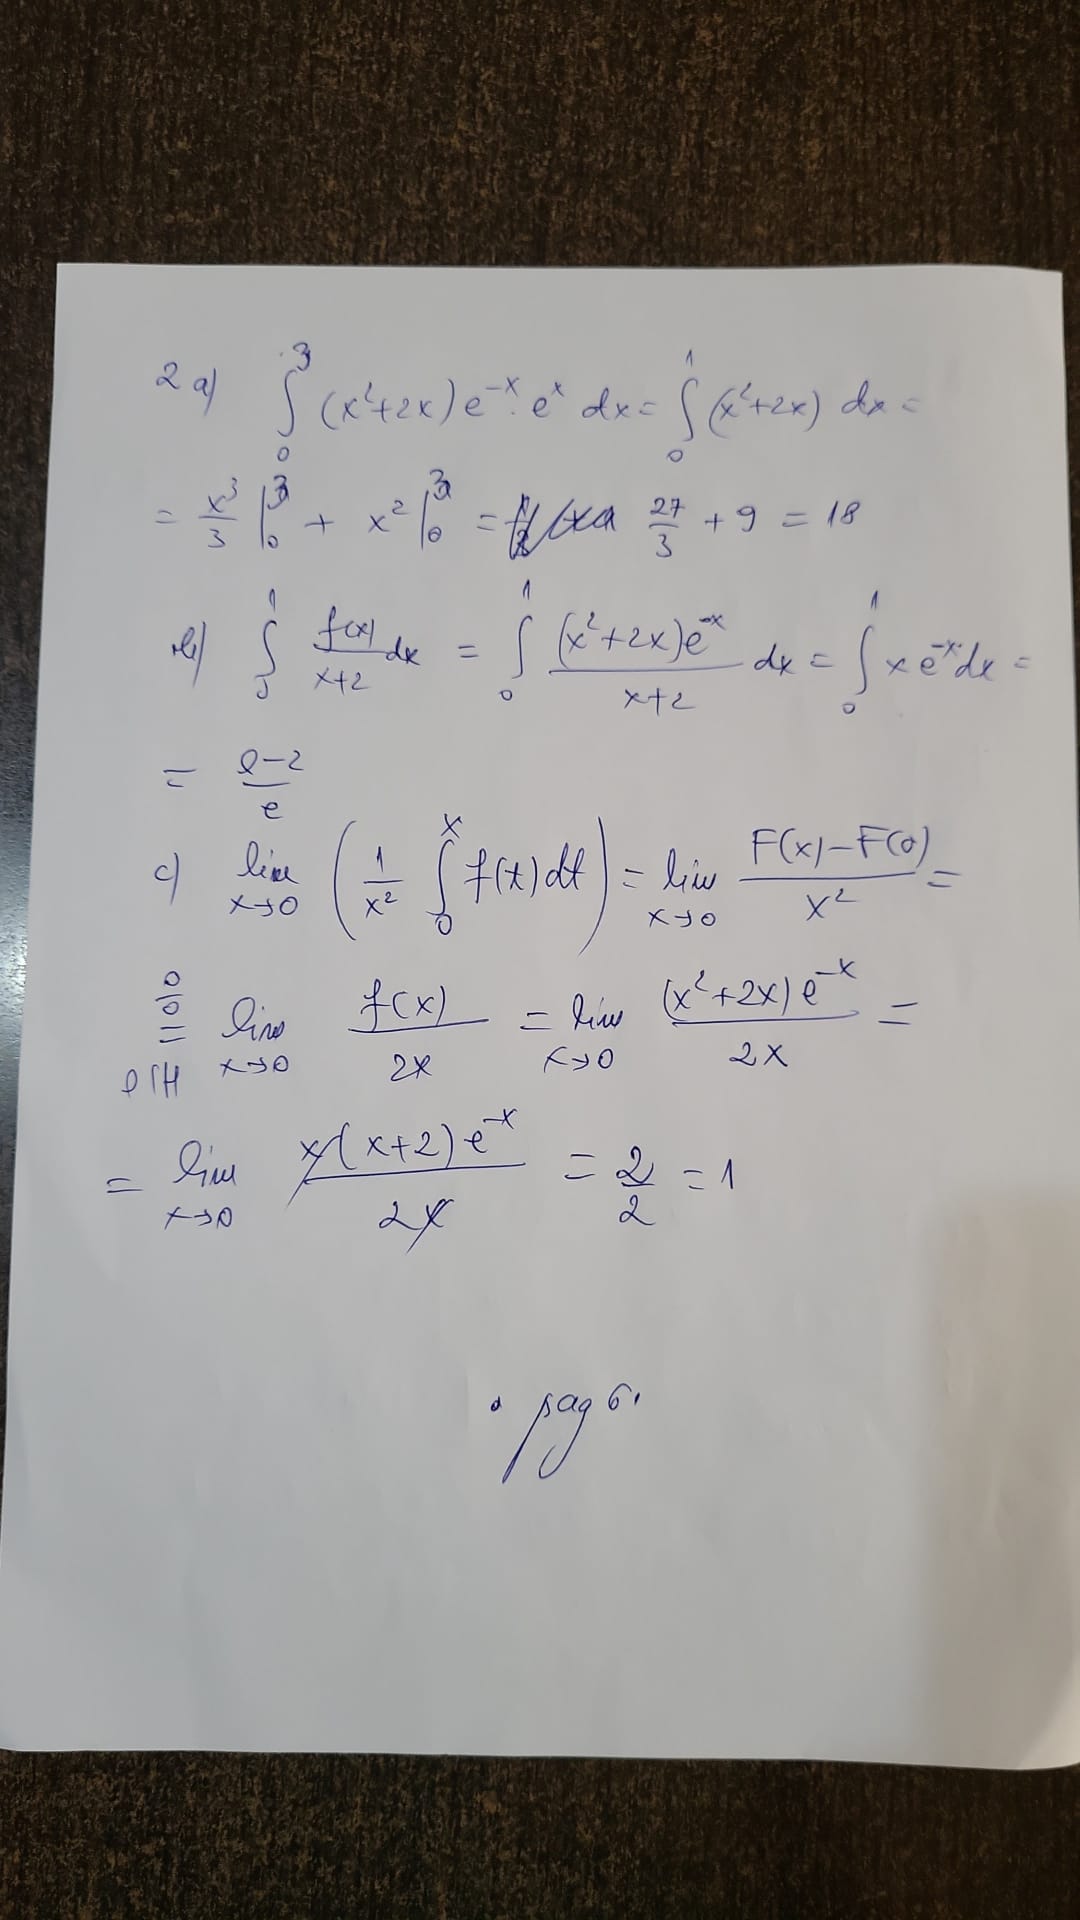 2 a) ∫₀³ (x²+2x) e⁻ˣ · eˣ dx = ∫₀¹ (x²+2x) dx =
= x³/3 |₀³ + x² |₀³ = 27/3 + 9 = 18
b) ∫₀¹ f(x)/(x+2) dx = ∫₀¹ (x²+2x)e⁻ˣ/(x+2) dx = ∫₀¹ x e⁻ˣ dx =
= (e-2)/e
c) lim x→0 (1/x² ∫₀ˣ f(t)dt) = lim x→0 (F(x)-F(0))/x² =
0/0 = l'H lim x→0 f(x)/2x = lim x→0 (x²+2x)e⁻ˣ/2x =
= lim x→0 x(x+2)e⁻ˣ/2x = 2/2 = 1
pag 6.